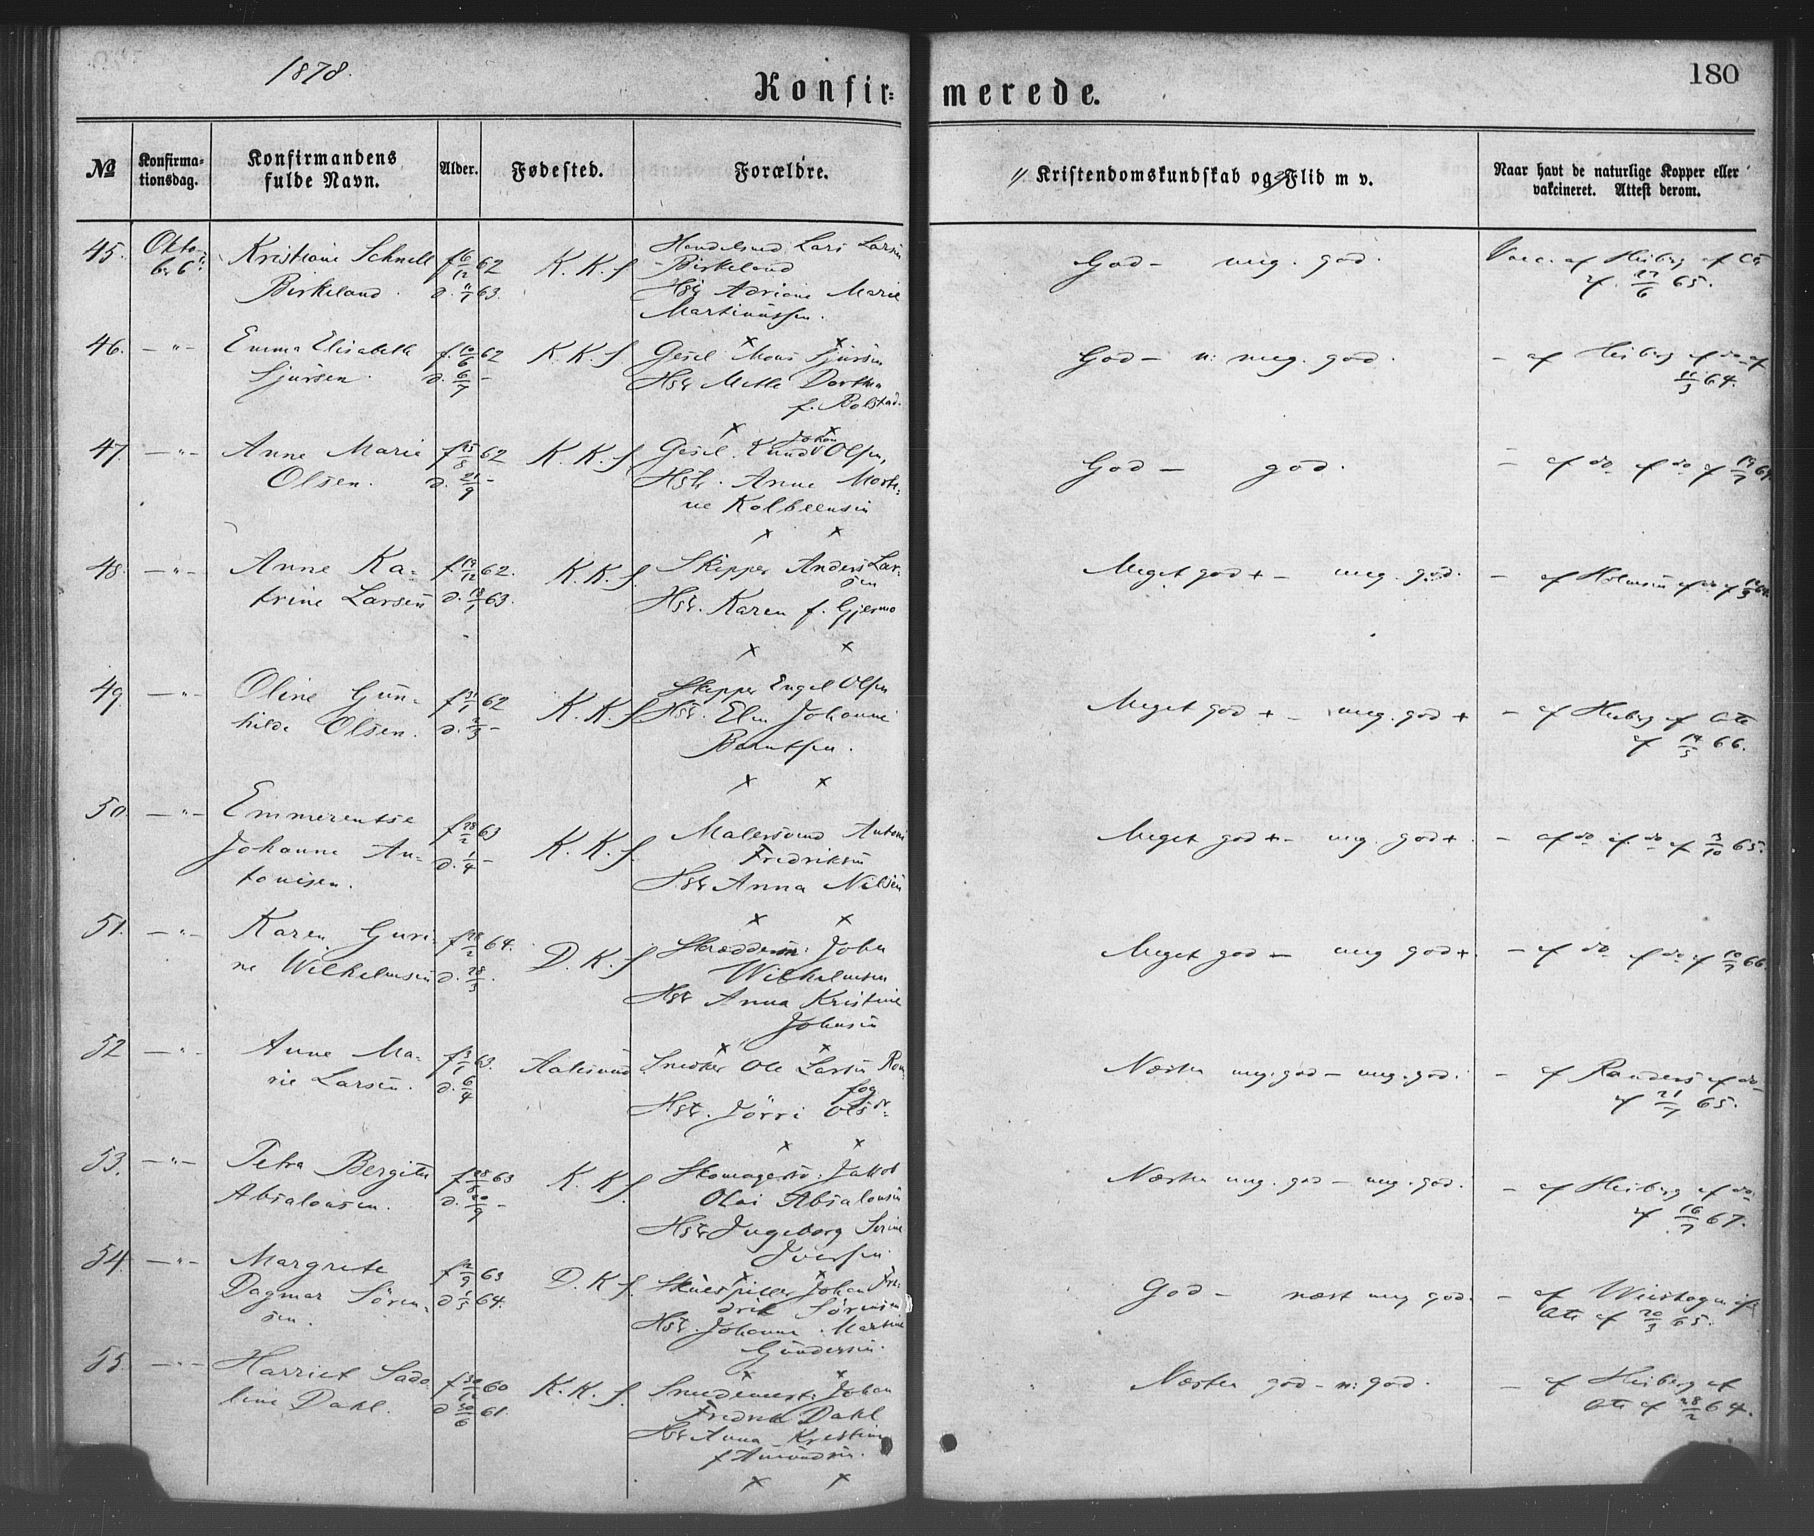 1878.
180
Konfir= merede.
№
Konfirma=
tionsdag.
Konfirmandens
fulde Navn.
Alder.
Fødested.
Forældre.
1/ Kristendomskundskab og 2/ Flid m v.
Naar havt de naturlige Kopper eller
vakcineret. Attest derom.
45. Okto-
ber 6te
Kristiane Schnell
Birkeland.
f. 16/12 62
d. 11/1 63.
K. K. f.
Handelsmd Lars Larsen
Birkeland
Hstr Adriane Marie
Martinussen.
God - meg. god.
Vacc. af Heiberg
af 27/6 65.
46. -"-
Emma Elisabeth
Sjursen.
f. 10/6 62
d. 6/7 -
K. K. f.
Gesel Mons Sjursen
Hstr Mette Dorthea
f. Bolstad.
God - n: meg. god.
- af Heiberg af do af
11/3 64.
47. -"-
Anne Marie
Olsen.
f. 15/8 62
d. 21/9 -
K. K. f.
Gesel. Knud Johan Olsen,
Hstr. Anne Marti-
ne Kolbeensen
God - god.
- af do af do af 19/7 64
48. -"-
Anne Ka-
trine Larsen
f. 19/12 62.
d. 18/1 63.
K. K. f.
Skipper Anders Lar-
sen
Hstr. Karen f. Gjermo
Meget god + - meg. god.
- af Holmsen af do af
49 -"-
Oline Gun-
hilde Olsen.
f. 31/1 62
d. 2/3 -
K. K. f.
Skipper Engel Olsen
Hstr. Elen Johanne
Berntsen.
Meget god + - meg. god +
- af Heiberg af Atte
af 14/5 66.
50. -"-
Emmerentse
Johanne An-
tonisen.
f. 28/2 63
d. 1/4 -
K. K. f.
Malersvend Antoni
Fredriksen
Hstr Anna Nilsen
Meget god + - meg god +.
- af do af do af 3/10 65.
51. -"-
Karen Guri-
ne Wilhelmsen
f. 18/2 64.
d. 28/3.
D. K. f.
Skræddersv. Johan
Wilhelmsen
Hstr Anna Kristine
Johnsen
Meget god - meg god +.
- af do af do af 10/7 66.
52 -"-
Anne Ma-
rie Larsen.
f. 3/1 63.
d. 6/4
Aalesund
Snedker Ole Larsen Rom
fog
Hstr. Jörri Olsdr
Næsten meg. god - meg. god.
- af Randers af do
af 21/7 65.
53. -"-
Petra Bergitte
Absalonsen.
f. 28/8 63
d. 20/9 -
K. K. f.
Skomagersv. Jakob
Olai Absalonsen
Hstr Ingeborg Serine
Iversen.
Næsten meg. god - meg. god.
- af Heiberg af do
af 16/7 67.
54. -"-
Margrete
Dagmar Sören-
sen.
f. 12/9 63
d. 1/5 64.
D. K. f.
Skuespiller Johan Fre-
drik Sörensen
Hstr. Johanne Martine
Gundersen.
God - næst meg god.
Atte af 20/3 65.
55. -"-
Harriet Sado
line Dahl.
f. 30/12 60
d. 30/6 61.
K. K. f.
Smedemest: Johan
Fredrik Dahl
Hstr Anna Kristine
f. Amundsen.
Næsten god - n: god.
- af Heiberg af
Atte af 28/2 64.